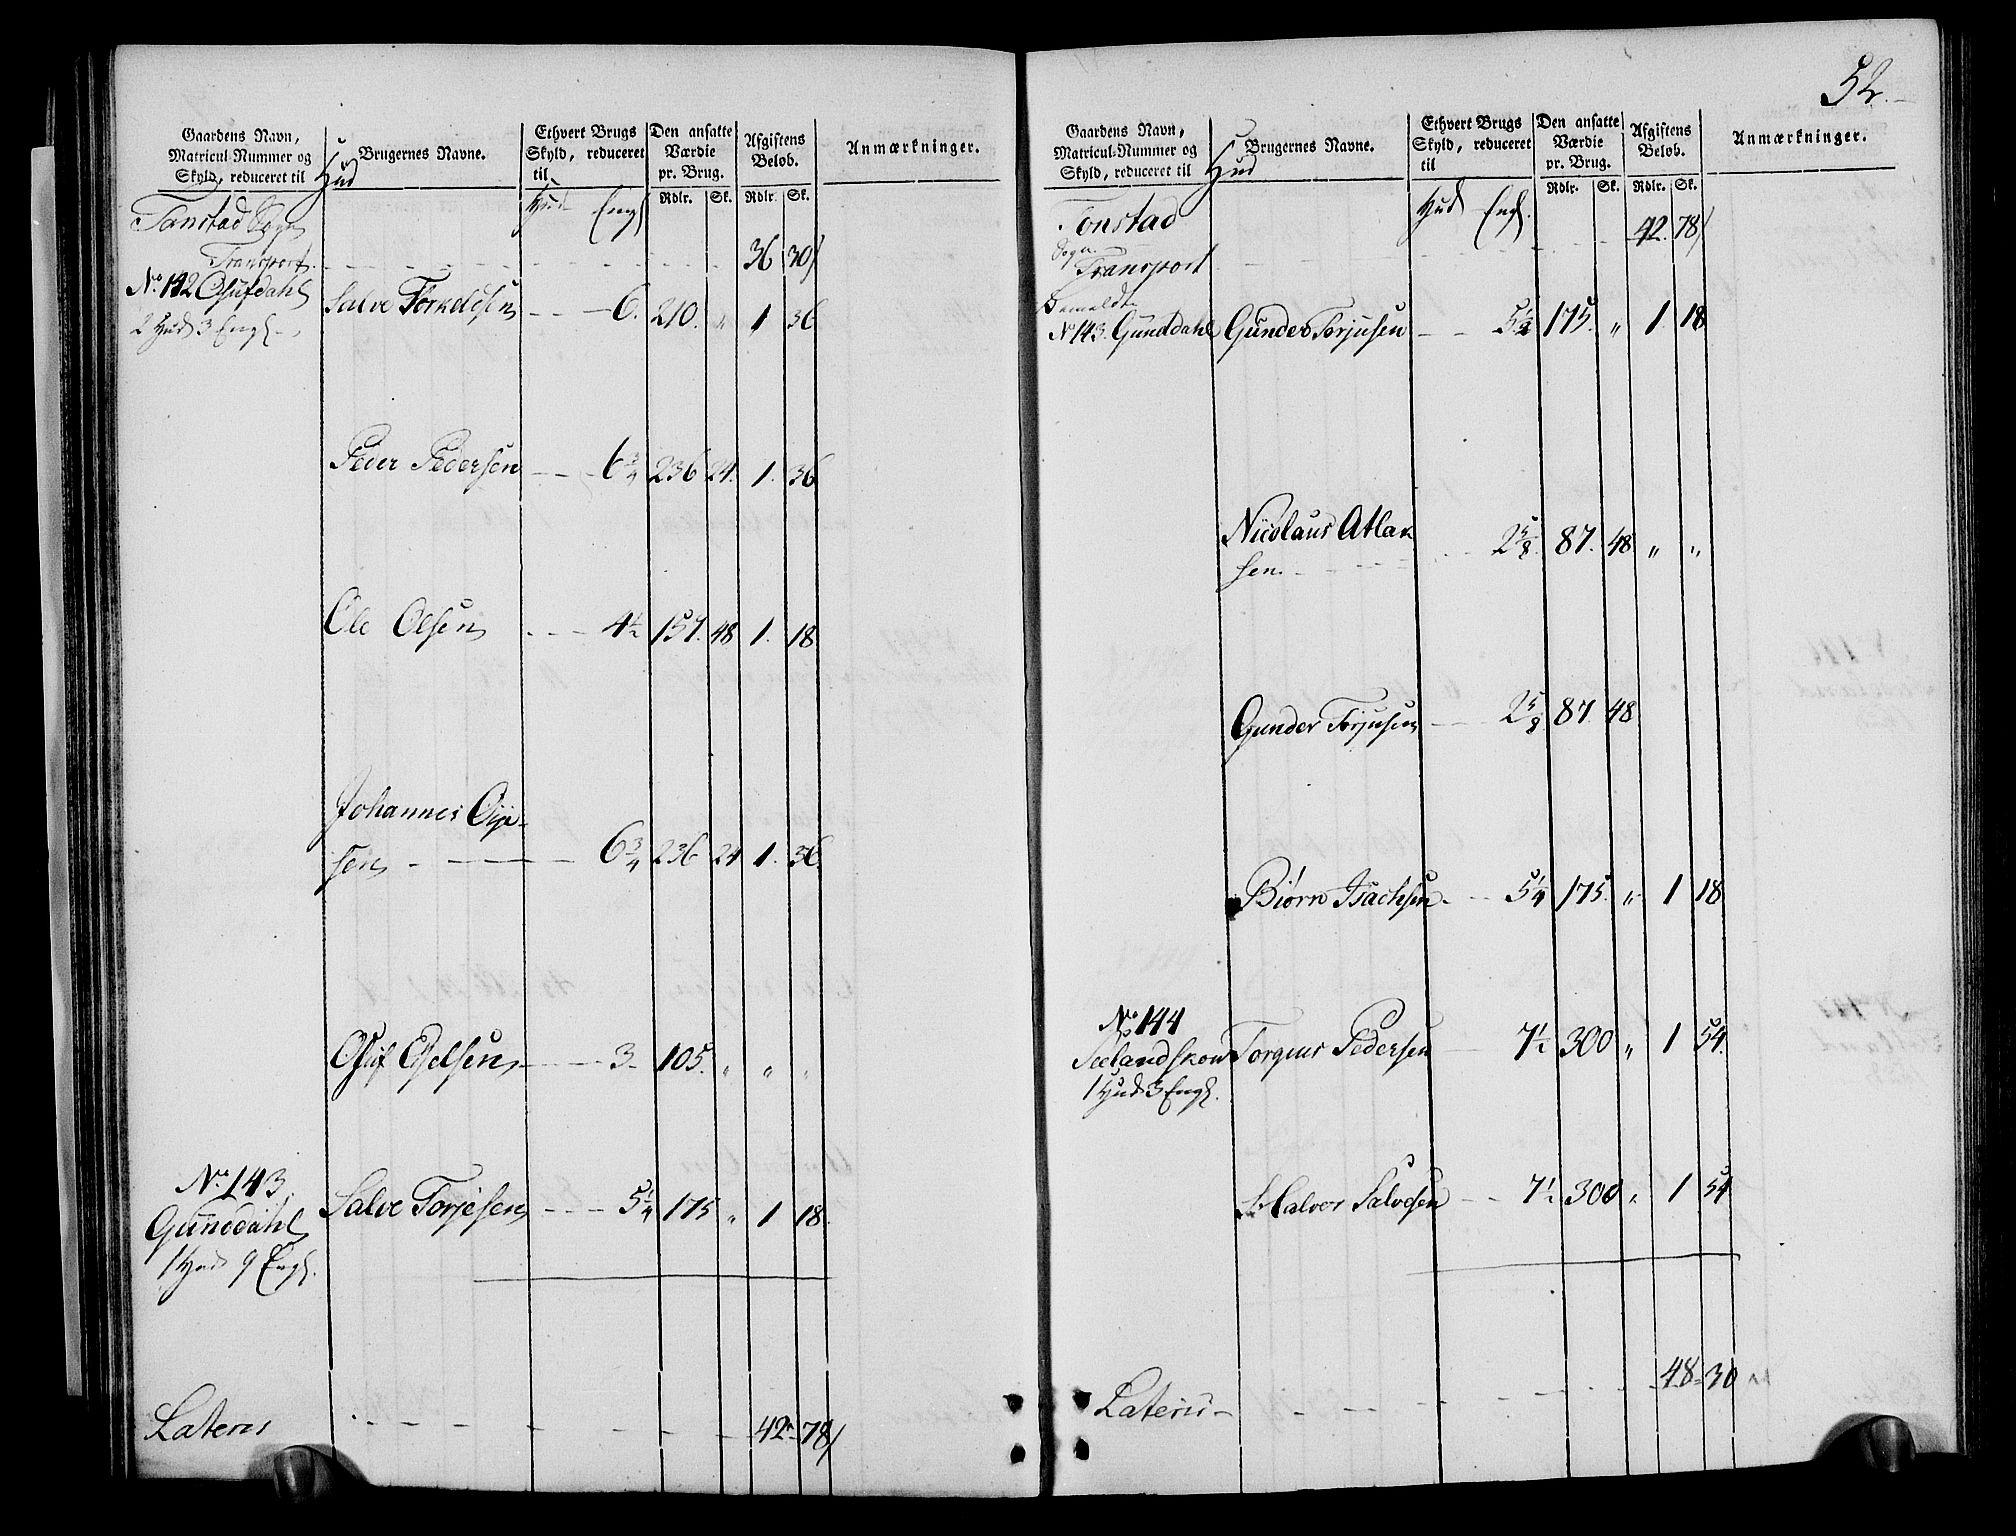 Gaardens Navn, Matricul-Nummer og Skyld, reduceret til Hud | Brugernes Navne. | Ethvert Brugs Skyld, reduceret til | Den ansatte Værdie pr. Brug. | Afgiftens Beløb. | Anmærkninger.
Hud Engl | Rdlr. | Sk. | Rdlr. | Sk.
Tonstad Sogn
Transport 36 30
No 142 Osufdahl Salve Torkelsen 6. 210. „ 1 36
2 Hud 3 Engl
Peder Pedersen 6 3/4 236 24. 1. 36
Ole Olsen 4 1/2 157. 48 1. 18
Johannes
sen 6 3/4 236 24 1. 36.
3. 105. „ „ „
No 143, Salve Torjesen 5 1/4 175 „ 1 18.
Gunddahl
1 Hud 9 Engl.
Lateris 42 78
52.
Gaardens Navn, Matricul-Nummer og Skyld, reduceret til Hud | Brugernes Navne. | Ethvert Brugs Skyld, reduceret til | Den ansatte Værdie pr. Brug. | Afgiftens Beløb. | Anmærkninger.
Hud Engl. | Rdlr. | Sk. | Rdlr. | Sk.
Tonstad 42. 78
Sogn
Transport
Bemeldte
No 143. Gunddahl Gunder Torjusen 5 1/4 175. „ 1. 18
Nicolaus Atlak
sen. 2 5/8. 87. 48 „ „
Gunder Torjusen 2 5/8 87. 48
Biørn Isachsen 5 1/4 175. „ 1 18
No 144
Seelandskow Torgius Pedersen 7 1/2 300 „ 1 54.
1 Hud 3 Engl.
Halvor Salvesen 7 1/2 300 „ 1 54
Lateris 48 30